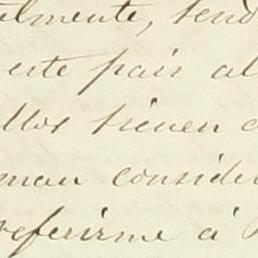 elmente, tend
este pais al
llos tienen a
man conside
referirme á